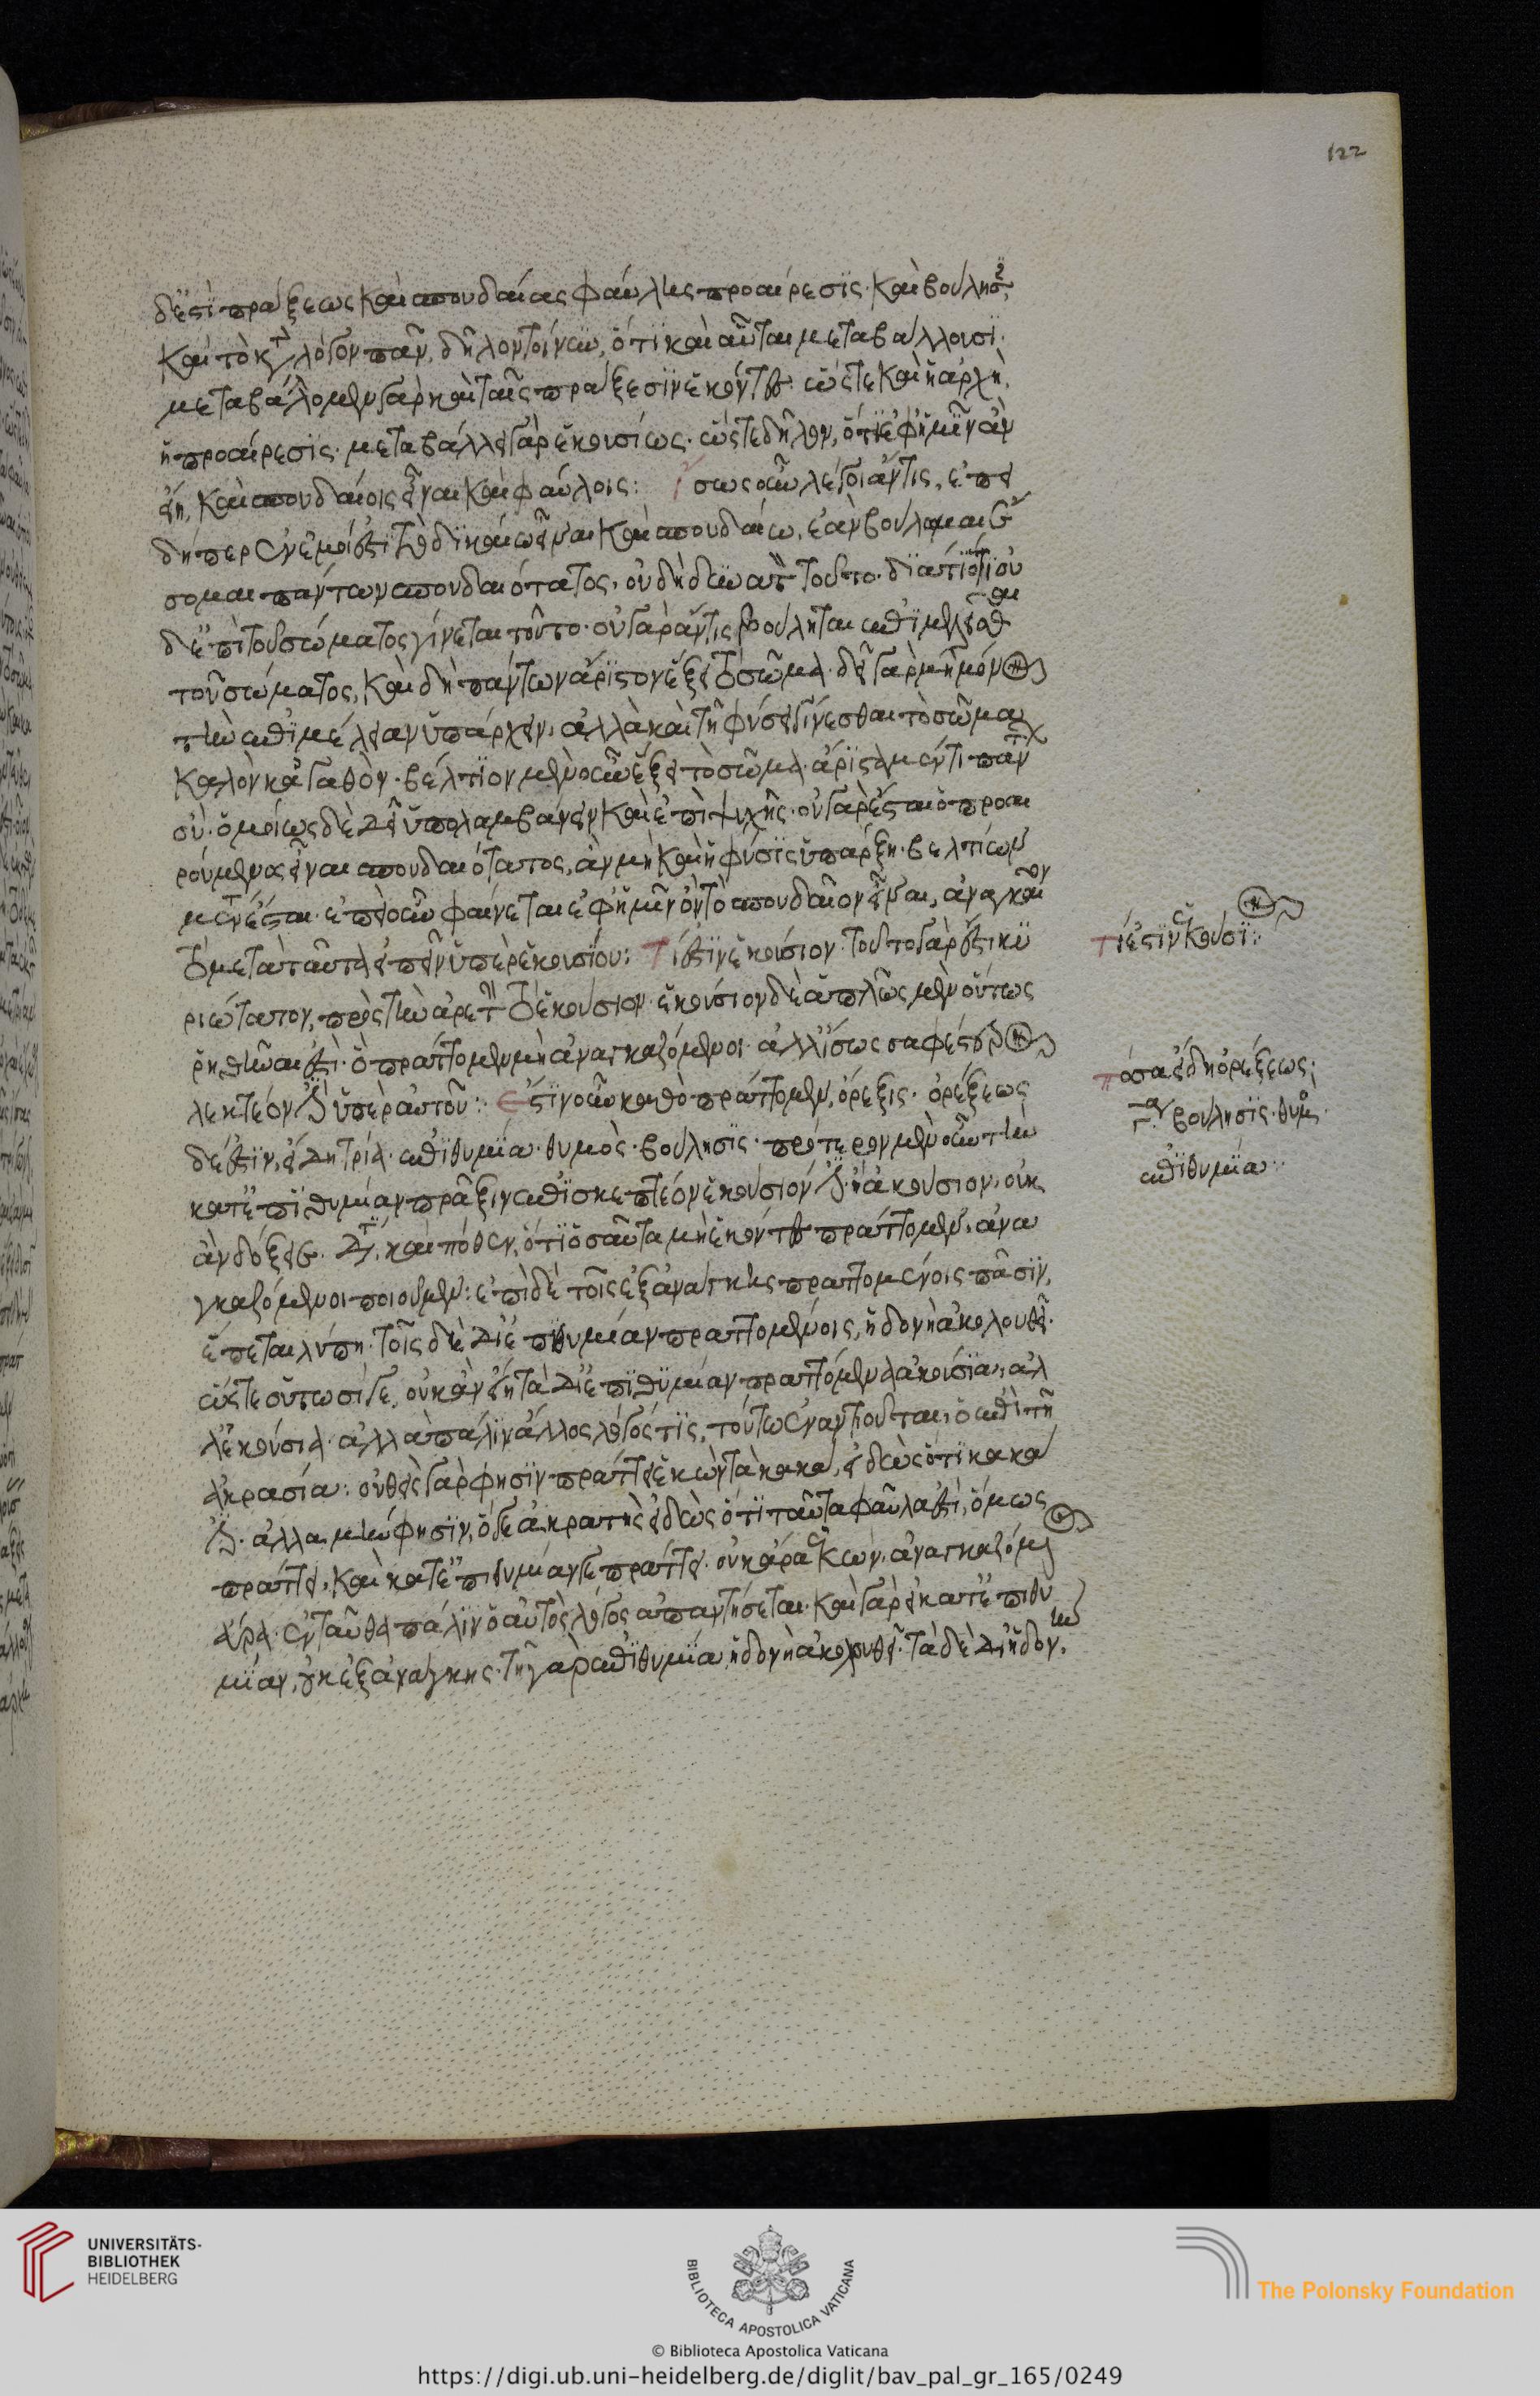 δέ ἐστι πράξεως καὶ σπουδαίας φαύλης προαίρεσις· καὶ βούλησις,
καὶ τὸ κατὰ λόγον πᾶν, δῆλον τοίνυν, ὅτι καὶ αὗται μεταβάλλουσι.
μεταβάλομεν γὰρ καὶ ταῖς πράξεσιν ἑκόντες· ὥστε καὶ ἡ ἀρχὴ,
ἡ προαίρεσις· μεταβάλλει γὰρ ἑκουσίως. ὥστε δῆλον, ὅτι ἐφ' ἡμῖν ἂν
εἴη, καὶ σπουδαίοις εἶναι καὶ φαύλοις: ἴσως οὖν λέγοι ἄν τις, ἐπει
δήπερ ἐν ἐμοί ἐστι τὸ δικαίω εἶναι καὶ σπουδαίω, ἐὰν βούλωμαι ἔ
σομαι πάντων σπουδαιότατος, οὐ δὴ δυνατὸν τοῦτο. διὰ τί ὅτι οὐ
δ' ἐπὶ τοῦ σώματος γίνεται τοῦτο· οὐ γὰρ ἄν τις βούληται ἐπιμελεῖσθαι
τοῦ σώματος, καὶ δὴ πάντων ἄριστον ἕξει τὸ σῶμα. δεῖ γὰρ μὴ μόνον
τὴν ἐπιμέλειαν ὑπάρχειν, ἀλλὰ καὶ τῇ φύσει γίνεσθαι τὸ σῶμα
καλὸν κἀγαθόν. βέλτιον μὲν οὖν ἕξει τὸ σῶμα. ἄριστα μέντοι πάντ
οὔ. ὁμοίως δὲ δεῖ ὑπολαμβάνειν καὶ ἐπὶ ψυχῆς. οὐ γὰρ ἔσται ὁ προαι
ρούμενος εἶναι σπουδαιότατος, ἂν μὴ καὶ ἡ φύσις ὑπάρξη. βελτίων
μέντοι ἔσται. ἐπεὶ οὖν φαίνεται ἐφ' ἡμῖν ὂν τὸ σπουδαῖον εἶναι, ἀναγκαῖον
τὸ μετὰ ταῦτα εἰπεῖν ὑπὲρ ἑκουσίου: τί ἐστιν ἑκούσιον. τοῦτο γάρ ἐστι κυ
ριώτατον, πρὸς τὴν ἀρετὴν τὸ ἑκούσιον. ἑκούσιον δὲ ἁπλῶς μὲν οὕτως
ῥηθῆναι ἐστι. ὃ πράττομεν μὴ ἀναγκαζόμενοι. ἀλλ' ἴσως σαφέστερον
λεκτέον ἐστὶν ὑπὲρ αὐτοῦ: ἔστιν οὖν καθὸ πράττομεν, ὄρεξις. ὀρέξεως
δέ ἐστιν, εἴδη τρία. ἐπιθυμία· θυμὸς· βούλησις. πρότερον μὲν οὖν τὴν
κατ' ἐπιθυμίαν πρᾶξιν ἐπισκεπτέον ἑκούσιόν ἐστιν ἢ ἀκούσιον. οὐκ
ἂν δόξειεν. διὰ τί, καὶ πόθεν; ὅτι ὅσα αὖτα μὴ ἑκόντες πράττομεν, ἀνα
γκαζόμενοι ποιοῦμεν: ἐπὶ δὲ τοῖς ἐξ ἀνάγκης πραττομένοις πᾶσιν,
ἕπεται λύπη. τοῖς δὲ δι' ἐπιθυμίαν πραττομένοις, ἡδονὴ ἀκολουθεῖ.
ὥστε οὕτωσί γε, οὐκ ἂν εἴη τὰ δι' ἐπιθυμίαν πραττόμενα ἀκούσια, ἀλ
λ' ἑκούσια. ἀλλὰ πάλιν ἄλλος λόγός τις, τούτω ἐναντιοῦται. ὁ ἐπὶ τῇ
ἀκρασία: οὐθεὶς γὰρ φησὶν πράττει ἑκὼν τὰ κακὰ, εἰδὼς ὅτι κακά
ἐστιν. ἀλλὰ μὴν φησὶν, ὅ γε ἀκρατὴς εἰδὼς ὅτι ταῦτα φαῦλα ἐστὶ, ὅμως
πράττει, καὶ κατ' ἐπιθυμίαν γε πράττει. οὐκ ἄρα ἑκών. ἀναγκαζόμενος
ἄρα. ἐνταῦθα πάλιν ὁ αὐτὸς λόγος ἀπαντήσεται. καὶ γὰρ εἰ κατ' ἐπιθυ
μίαν, οὐκ ἐξ ἀνάγκης. τῇ γὰρ ἐπιθυμία, ἡδονὴ ἀκολουθεῖ. τὰ δὲ δι' ἡδονὴν,
τί ἐστιν ἑκούσιον:
πόσα εἴδη ὀρέξεως;
βούλησις. θυμὸς.
ἐπιθυμία:
122
UNIVERSITÄTS-
BIBLIOTHEK
HEIDELBERG
BIBLIOTECA APOSTOLICA VATICANA
The Polonsky Foundation
© Biblioteca Apostolica Vaticana
https://digi.ub.uni-heidelberg.de/diglit/bav_pal_gr_165/0249